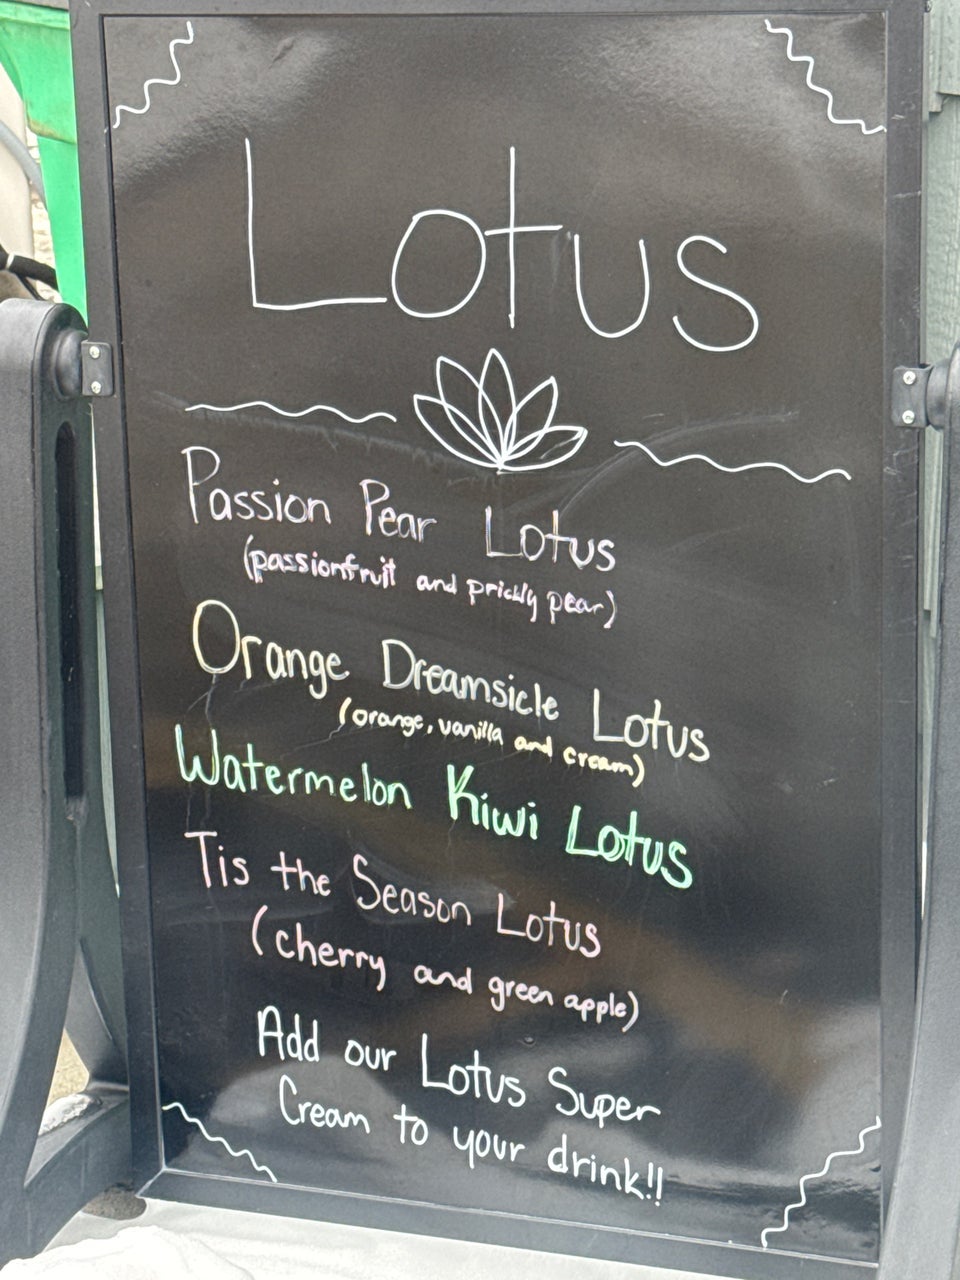 Lotus
Passion Pear Lotus
(passionfruit and prickly pear)
Orange Dreamsicle Lotus
(orange, vanilla and cream)
Watermelon Kiwi Lotus
Tis the Season Lotus
(cherry and green apple)
Add our Lotus Super
Cream to your drink!!